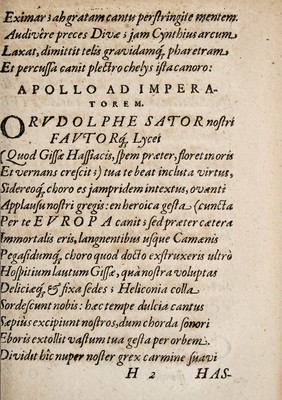 Eximar: ah gratam cantu perstringite mentem.
Audivêre preces Divæ: jam Cynthius arcum
Laxat, dimittit telis gravidamq́; pharetram
Et percussa canit plectro chelys ista canoro:
APOLLO AD IMPERA-
TOREM.
O RVDOLPHE SATOR nostri
FAVTORq́; Lycei
(Quod Gissæ Hassiacis, spem præter, floret in oris
Et vernans crescit:) tua te beat incluta virtus,
Sidereoq́; choro es jampridem intextus, ovanti
Applausu nostri gregis: en heroica gesta (cuncta
Per te EVROPA canit: sed præter cætera
Immortalis eris, languentibus usque Camænis
Pegasidumq́; choro quod docto exstruxeris ultrò
Hospitium lautum Gissæ, quà nostra voluptas
Deliciæq́; & fixa sedes: Heliconia colla
Sordescunt nobis: hæc tempe dulcia cantus
Sæpius excipiunt nostros, dum chorda sonori
Eboris extollit vastum tua gesta per orbem.
Dividit hîc nuper noster grex carmine suavi
H 2 HAS-